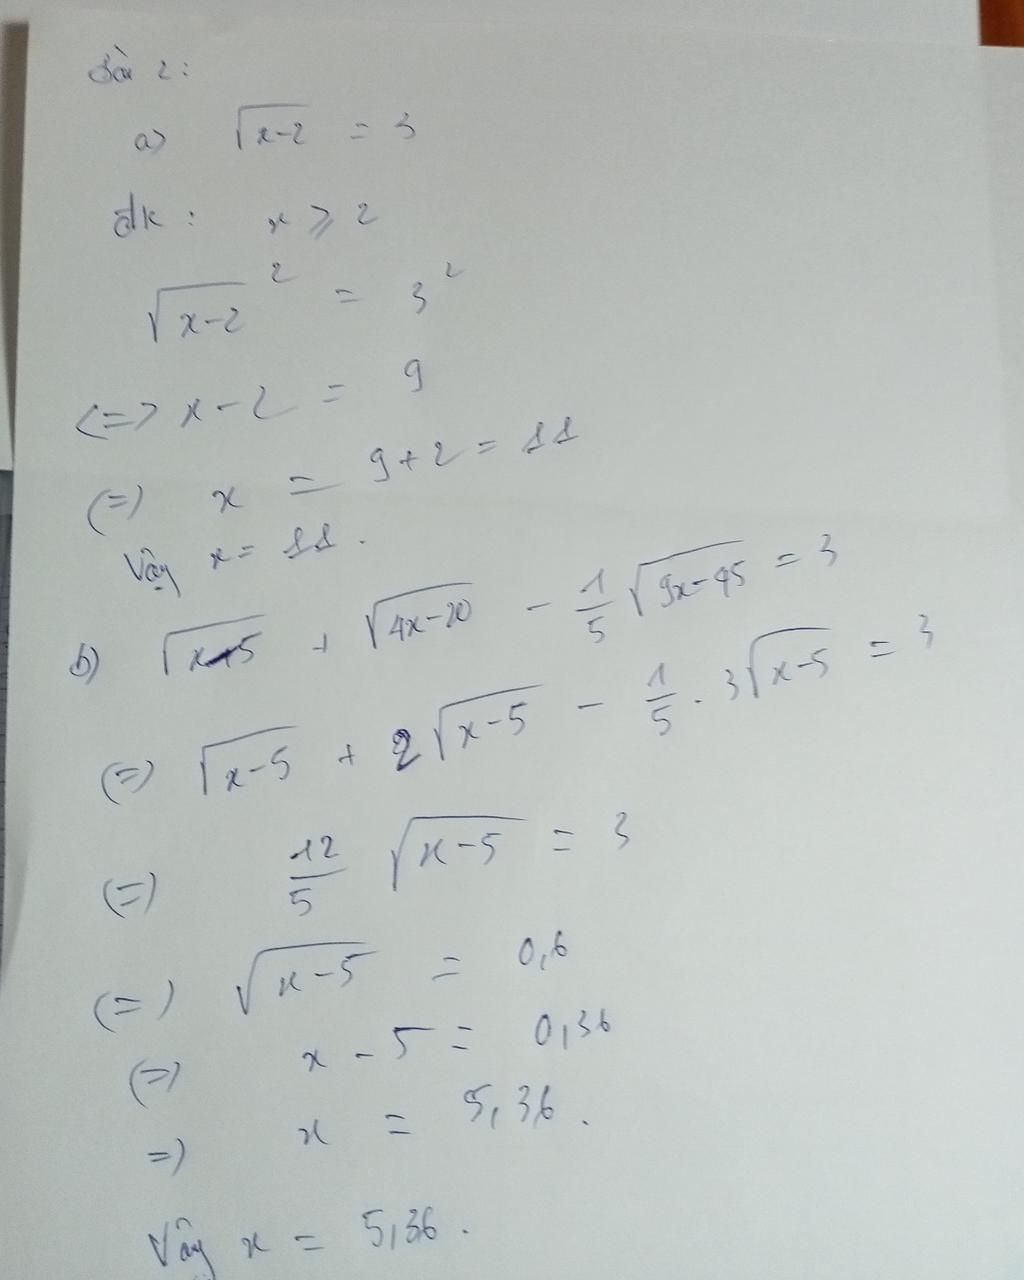 Bài 2:
a) √(x-2) = 3
đk: x ⩾ 2
√(x-2)² = 3²
<=> x-2 = 9
(=) x = 9+2 = 11
Vậy x = 11.
b) √(x-5) + √(4x-20) - 1/5 √(9x-45) = 3
(=) √(x-5) + 2√(x-5) - 1/5 . 3√(x-5) = 3
(=) 12/5 √(x-5) = 3
(=) √(x-5) = 0,6
(=) x - 5 = 0,36
=) x = 5,36.
Vậy x = 5,36.